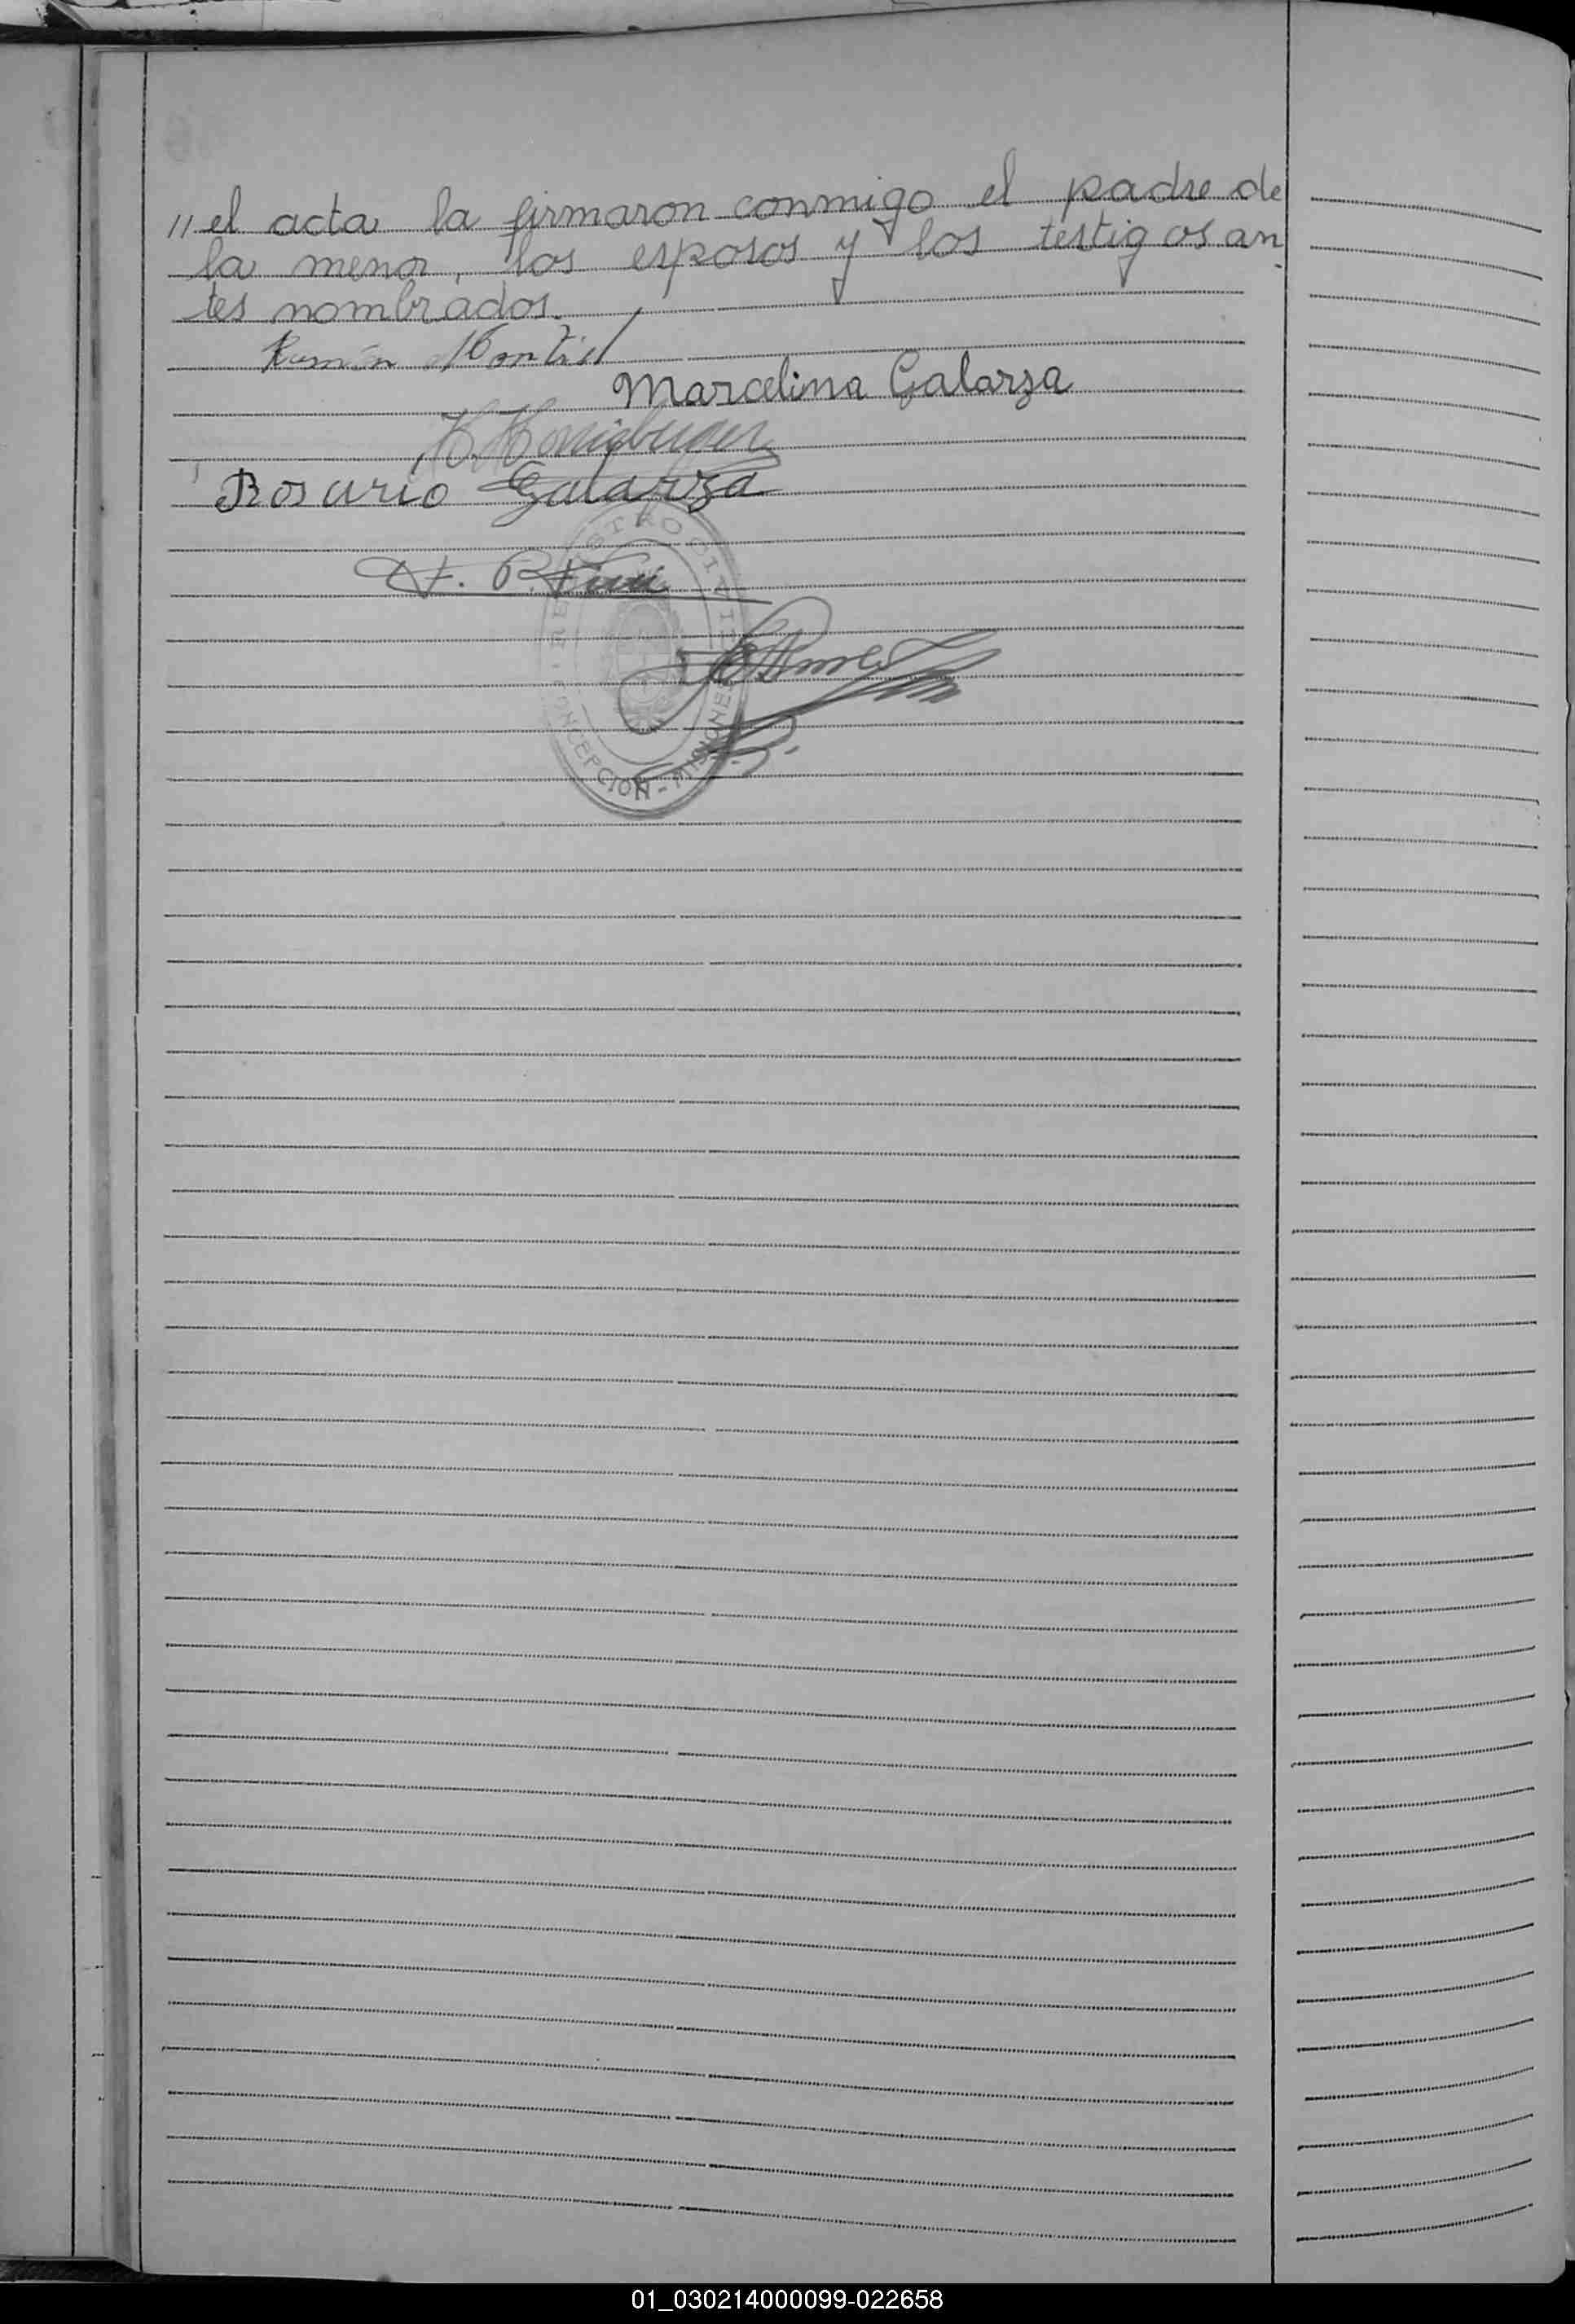 "el acta la firmaron conmigo el padre de
la menor, los esposos y los testigos an
tes nombrados.
Ramón Montiel
Marcelina Galarza
Rosario Galarza
REGISTRO CIVIL
CONCEPCION - MISIONES
01_030214000099-022658